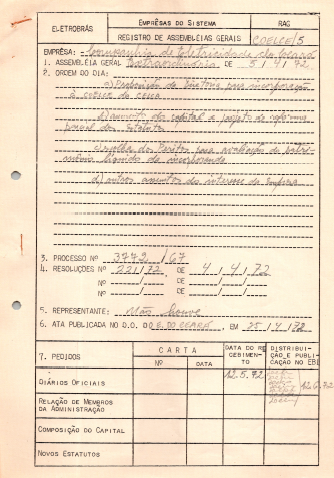 ELETROBRÁS
EMPRÊSAS DO SISTEMA
RAG
REGISTRO DE ASSEMBLÉIAS GERAIS
COELCE/5
EMPRÊSA: Companhia de Eletricidade do Ceará
1. ASSEMBLÉIA GERAL Extraordinária DE 5/4/72
2. ORDEM DO DIA:
a) para incorporação
b) aumento do capital e projeto de reforma
parcial dos Estatutos
c) escolha dos Peritos para avaliação do patri-
mônio líquido da incorporanda
d) outros assuntos do interesse da Empresa
3. PROCESSO Nº 3772/67
4. RESOLUÇÕES Nº 221/72, DE 4/4/72
Nº / , DE / /
Nº / , DE / /
5. REPRESENTANTE: Não houve
6. ATA PUBLICADA NO D.O. DO E. DO CEARÁ, EM 25/4/72
7. PEDIDOS
CARTA
Nº
DATA
DATA DO RE
CEBIMEN-
TO
DISTRIBUI-
ÇÃO E PUBLI
CAÇÃO NO EBE
DIÁRIOS OFICIAIS
12.5.72
12.6.72
RELAÇÃO DE MEMBROS
DA ADMINISTRAÇÃO
COMPOSIÇÃO DO CAPITAL
NOVOS ESTATUTOS